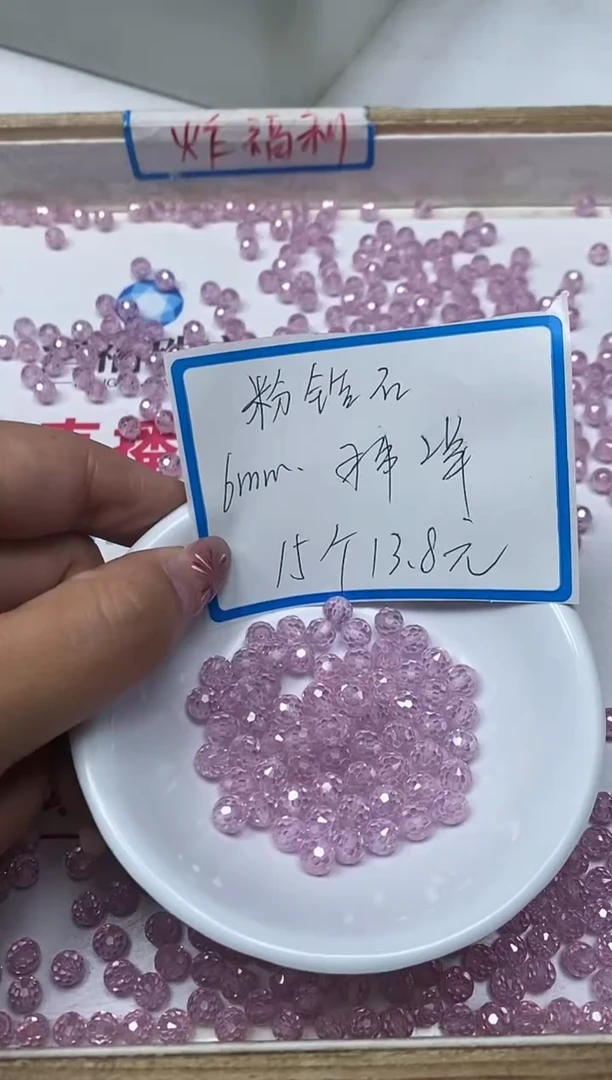 炸福利
直播
粉锆石
6mm.
15个13.8元